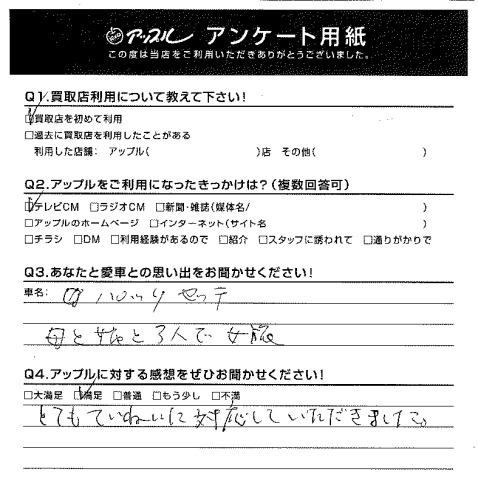 アップル アンケート用紙
この度は当店をご利用いただきありがとうございました。
Q1.買取店利用について教えて下さい!
☑買取店を初めて利用
□過去に買取店を利用したことがある
利用した店舗: アップル( )店 その他( )
Q2.アップルをご利用になったきっかけは?(複数回答可)
☑テレビCM □ラジオCM □新聞・雑誌(媒体名/ )
□アップルのホームページ □インターネット(サイト名 )
□チラシ □DM □利用経験があるので □紹介 □スタッフに誘われて □通りがかりで
Q3.あなたと愛車との思い出をお聞かせください!
車名:
母と娘と3人で女旅
Q4.アップルに対する感想をぜひお聞かせください!
□大満足 ☑満足 □普通 □もう少し □不満
とてもていねいに対応していただきました。